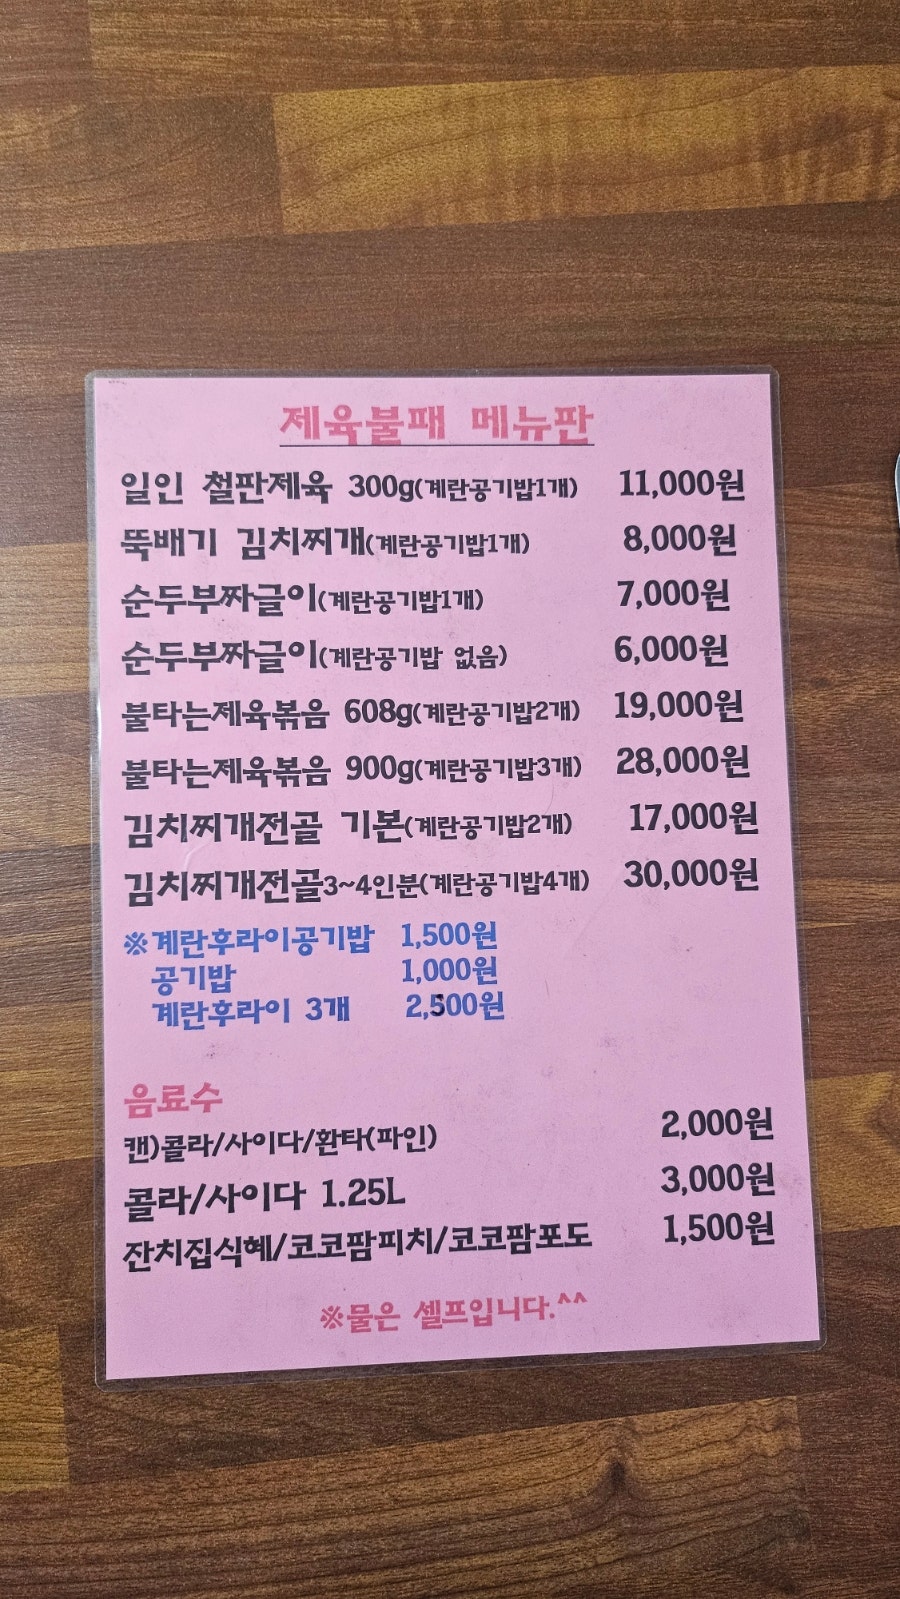 제육불패 메뉴판
일인 철판제육 300g(계란공기밥1개) 11,000원
뚝배기 김치찌개(계란공기밥1개) 8,000원
순두부짜글이(계란공기밥1개) 7,000원
순두부짜글이(계란공기밥 없음) 6,000원
불타는제육볶음 608g(계란공기밥2개) 19,000원
불타는제육볶음 900g(계란공기밥3개) 28,000원
김치찌개전골 기본(계란공기밥2개) 17,000원
김치찌개전골3~4인분(계란공기밥4개) 30,000원
※계란후라이공기밥 1,500원
공기밥 1,000원
계란후라이 3개 2,500원
음료수
캔)콜라/사이다/환타(파인) 2,000원
콜라/사이다 1.25L 3,000원
잔치집식혜/코코팜피치/코코팜포도 1,500원
※물은 셀프입니다.^^